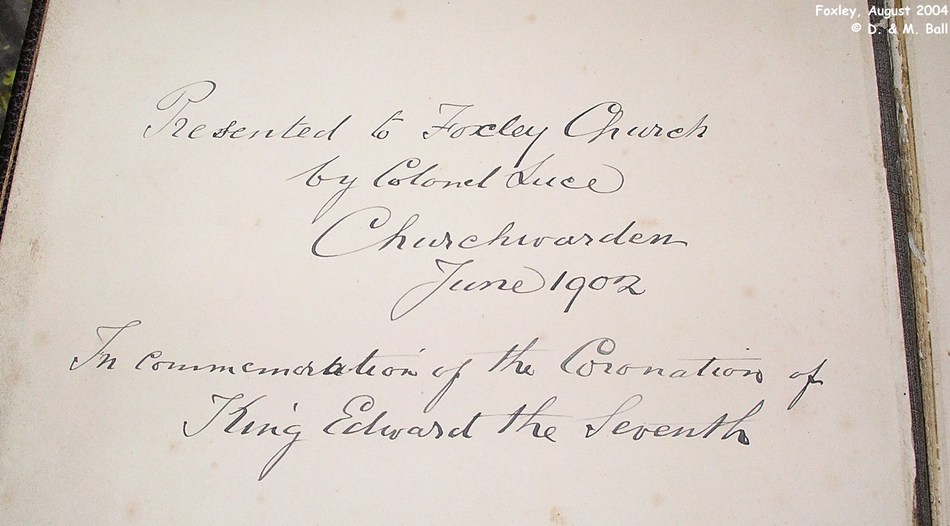 Foxley, August 2004
© D. & M. Ball
Presented to Foxley Church
by Colonel Luce
Churchwarden
June 1902
In commemoration of the Coronation of
King Edward the Seventh